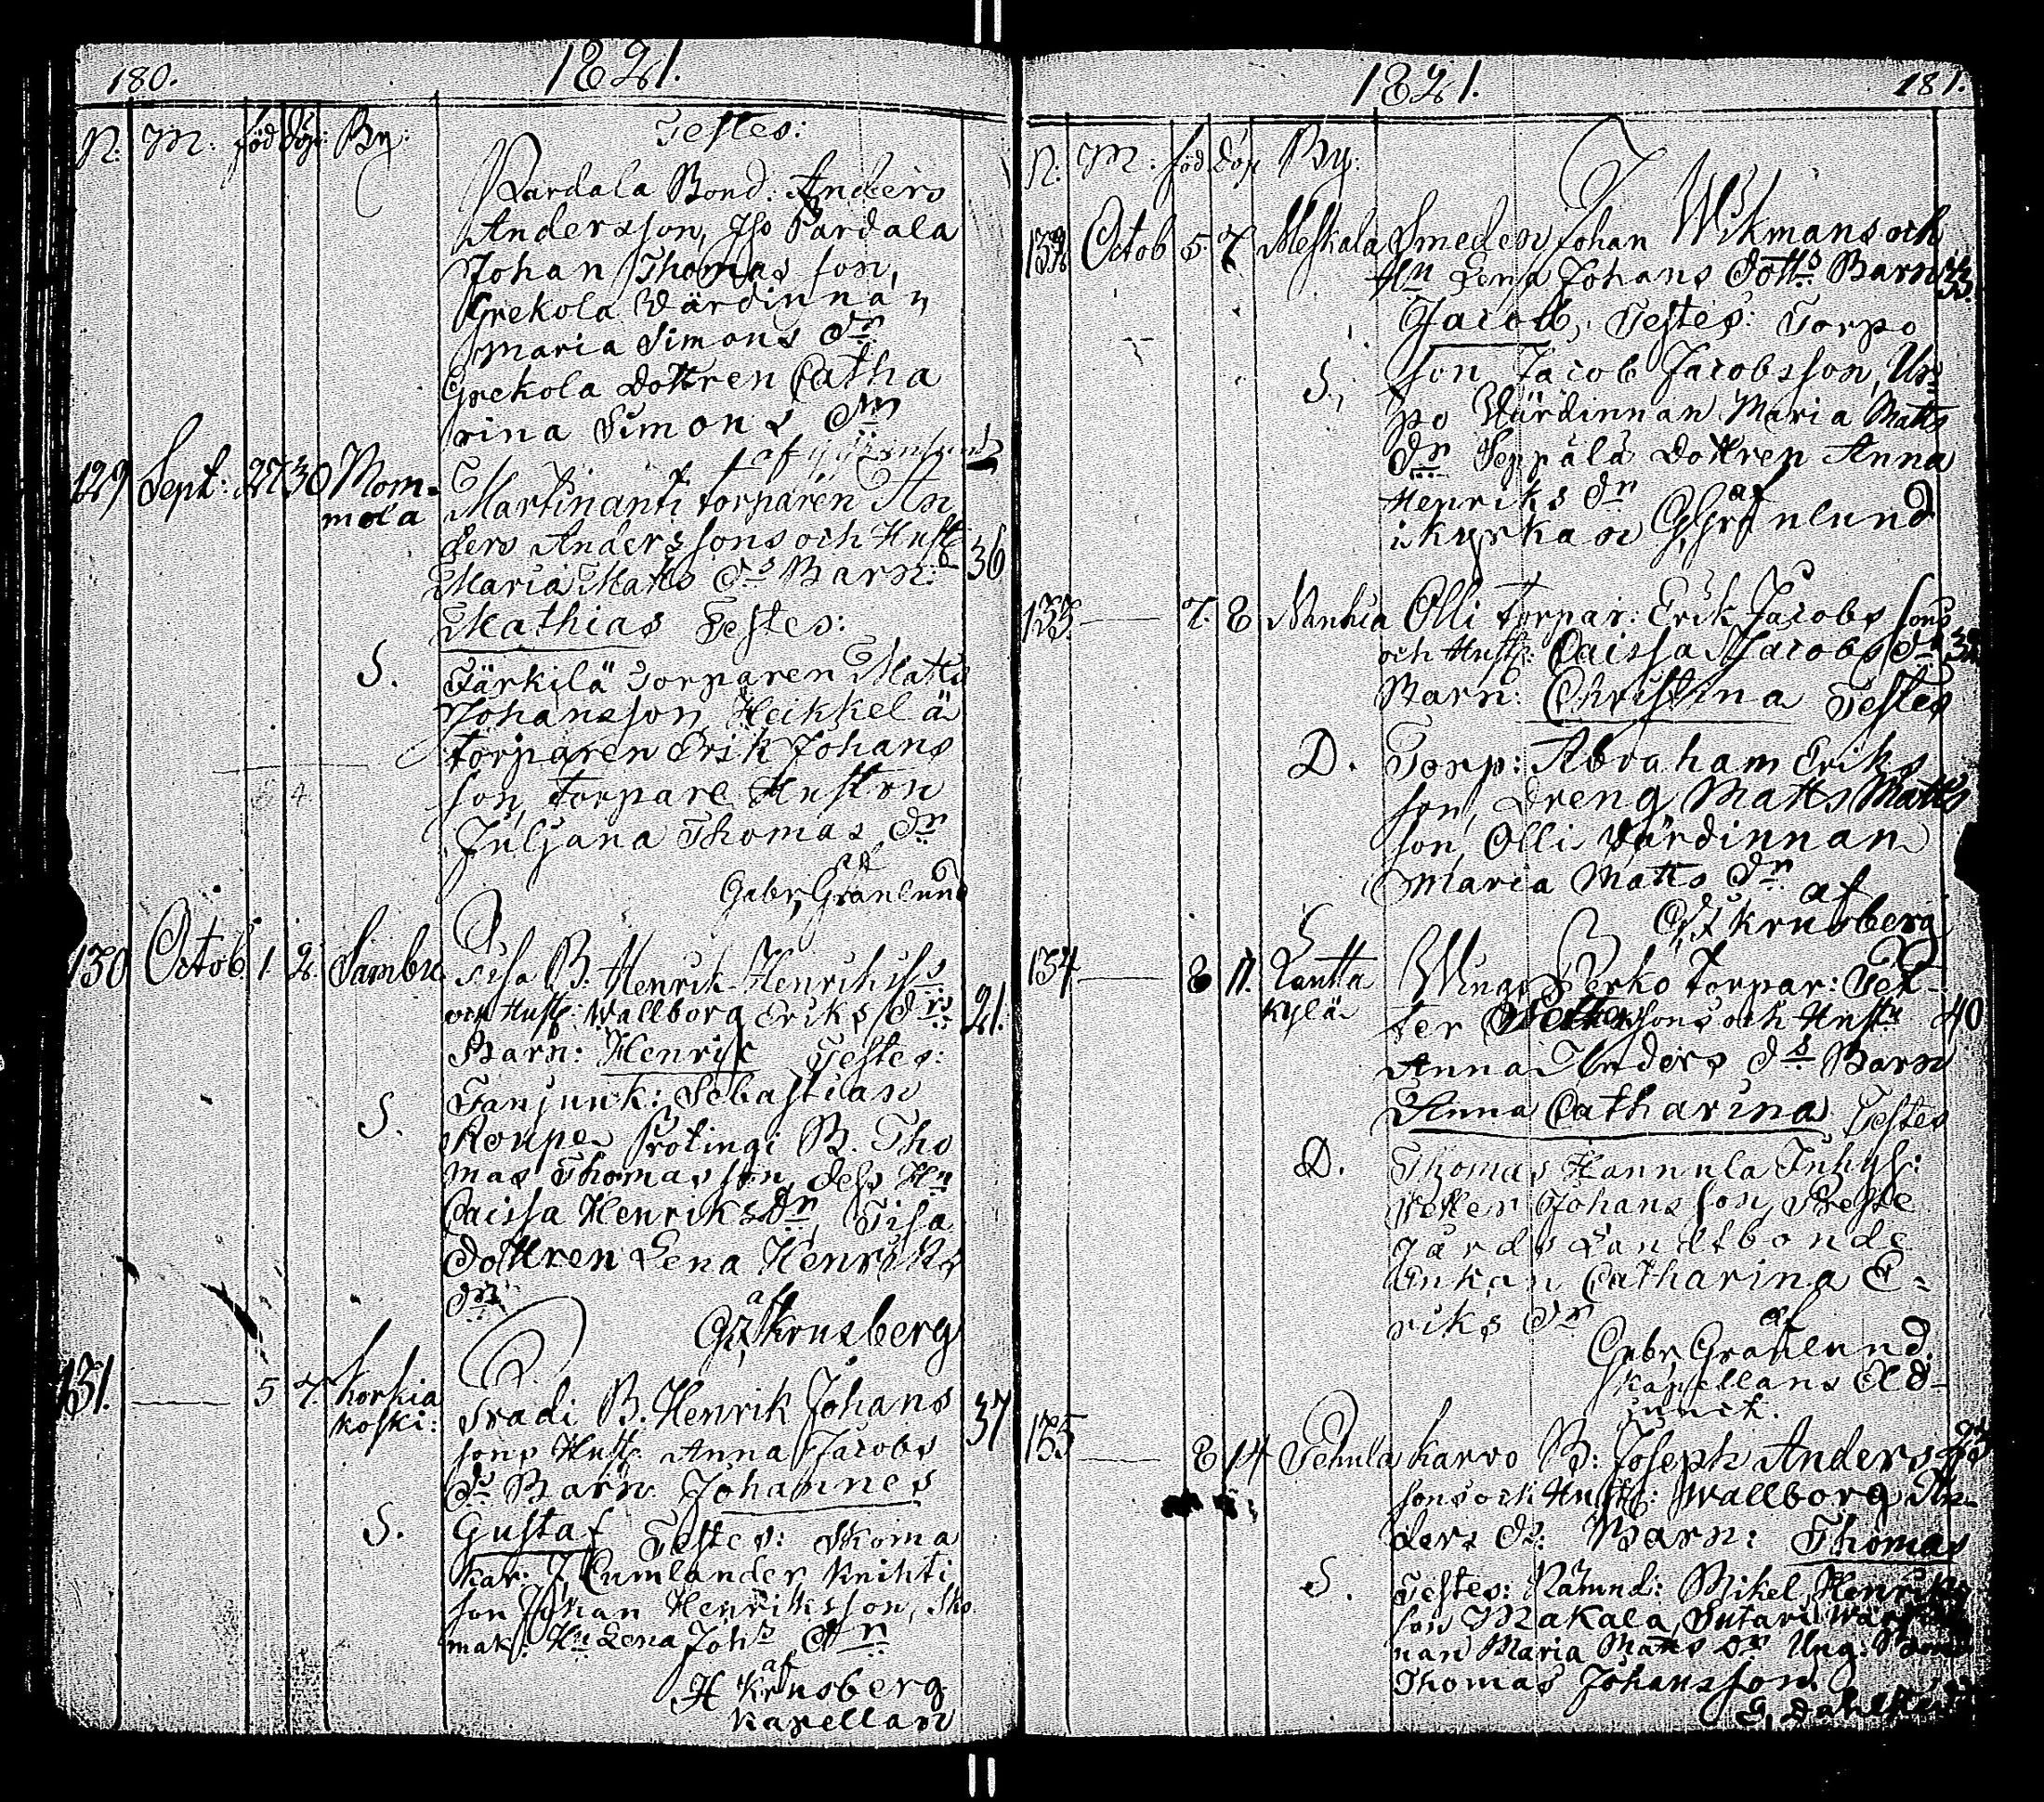 180.
1821.
N: M: föd Döp: By:
Testes:
Pardala Bond: Anders
Andersson, Ths Pardala
Johan Thomas son,
Grekola Värdinnan
Maria Simons Dr
Grekola Dottren Catha
rina Simons Dr
af
129 Sept: 27 30 Mom-
mola
Martinanti torparen An
ders Anderssons och Hust
Maria Matts Ds Barn: 36
Mathias Testes:
S.
Särkilä Torparen Matts
Johansson, Heikkelä
torparen Erik Johans
son, torpare Hustrn
Juljana Thomas Dr
af
Gabr. Granlund
130 Octob 1. 2. Sambu
Sisa B. Henrik Henriks
och Hust: Wallborg Eriks Drs 21.
Barn: Henric Testes:
S.
Fanjunk: Sebastian
Roupe Protingi B. Tho
mas Thomasson, dess Hu
Caissa Henriks Dr, Sisa
Dottren Lena Henriks
Dr
af
Krusberg
131. 5 7. Korkia
koski:
Pradi B. Henrik Johans 37
sons Hust Anna Jacobs
Ds Barn Johannes
S. Gustaf Testes: Skoma
kar. J. Cumlander Knihti
son Johan Henriksson, Sko
mak: Hu Lena Johs Dr
af
H Krusberg
Kapellan
1821.
181.
N: M: föd Döp By:
132 Octob 5. 7 Meskala Smeden Johan Wikmans och
Hn Lena Johans Dotts Barn 33.
Jacob, Testes: Torpo
S. son Jacob Jacobsson, Ur-
po Värdinnan Maria Matts
Dr Seppälä Dottren Anna
Henriks Dr
af
i kyrkan G. Granlund
133 7. 8 Nanhia Olli torpar: Erik Jacobs sons
och Hust: Caissa Jacobs Ds 32
Barn: Christina Testes
D. Torp: Abraham Eriks
son, Dreng Matts Matts
son, Olli Värdinnan
Maria Matts Dr
af
Krusberg
134 8 11. Lautta
kylä
Wings Perko torpar: Pet-
ter Petterssons och Hust 40
Anna Anders Ds Barn
Anna Catharina Testes
D. Thomas Hannula Inhys:
Petter Johansson, Preste
gårds Landtbonde
Enkan Catharina E-
riks Dr
af
Gabr. Granlund.
Kapellans Ad-
junct.
135 8 14 Sehula Karvo B: Joseph Anders
sons och Hust: Wallborg An-
ders Ds: Barn: Thomas
S. Testes: Nämnd: Mikel Henriks
son Makala, Sutari Wär
nan Maria Matts Dr Ung:
Thomas Johansson.